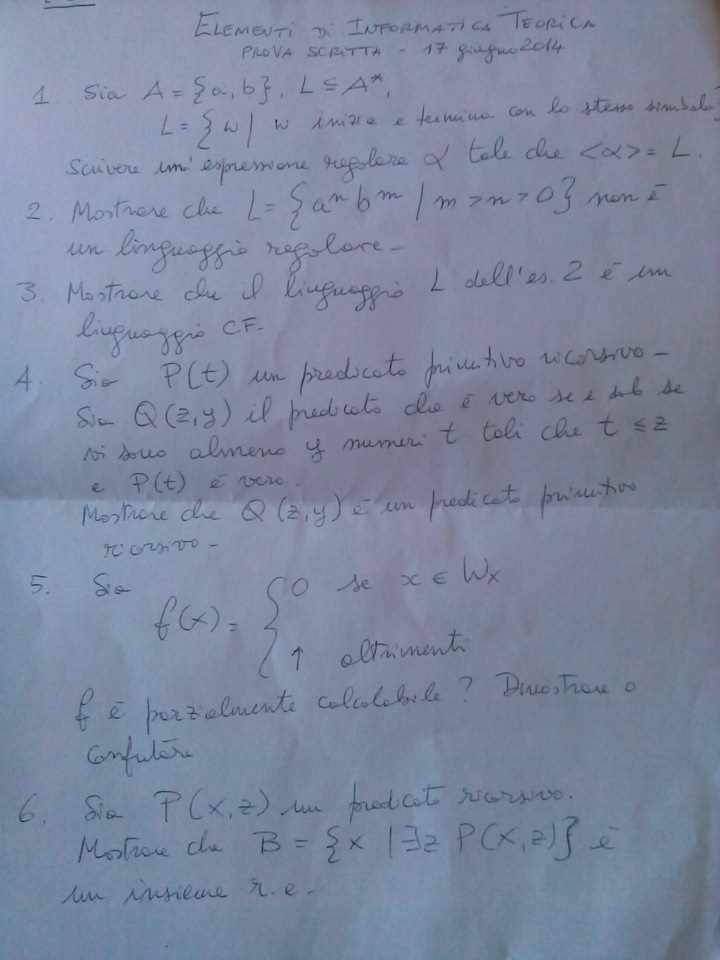 ELEMENTI DI INFORMATICA TEORICA
PROVA SCRITTA - 17 giugno 2014
1. Sia A = {a, b}, L ⊆ A*,
L = { w | w inizia e termina con lo stesso simbolo }
Scrivere un'espressione regolare α tale che <α> = L.
2. Mostrare che L = { aⁿ bᵐ | m > n > 0 } non è
un linguaggio regolare -
3. Mostrare che il linguaggio L dell'es. 2 è un
linguaggio CF.
4. Sia P(t) un predicato primitivo ricorsivo -
Sia Q(z, y) il predicato che è vero se e solo se
vi sono almeno y numeri t tali che t ≤ z
e P(t) è vero.
Mostrare che Q(z, y) è un predicato primitivo
ricorsivo -
5. Sia
f(x) = { 0 se x ∈ Wx
↑ altrimenti
f è parzialmente calcolabile? Dimostrare o
confutare
6. Sia P(x, z) un predicato ricorsivo.
Mostrare che B = { x | ∃z P(x, z) } è
un insieme r.e.